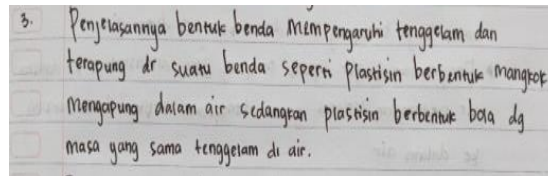 3. Penjelasannya bentuk benda mempengaruhi tenggelam dan
terapung dr suatu benda seperti plastisin berbentuk mangkok
mengapung dalam air sedangkan plastisin berbentuk bola dg
masa yang sama tenggelam di air.